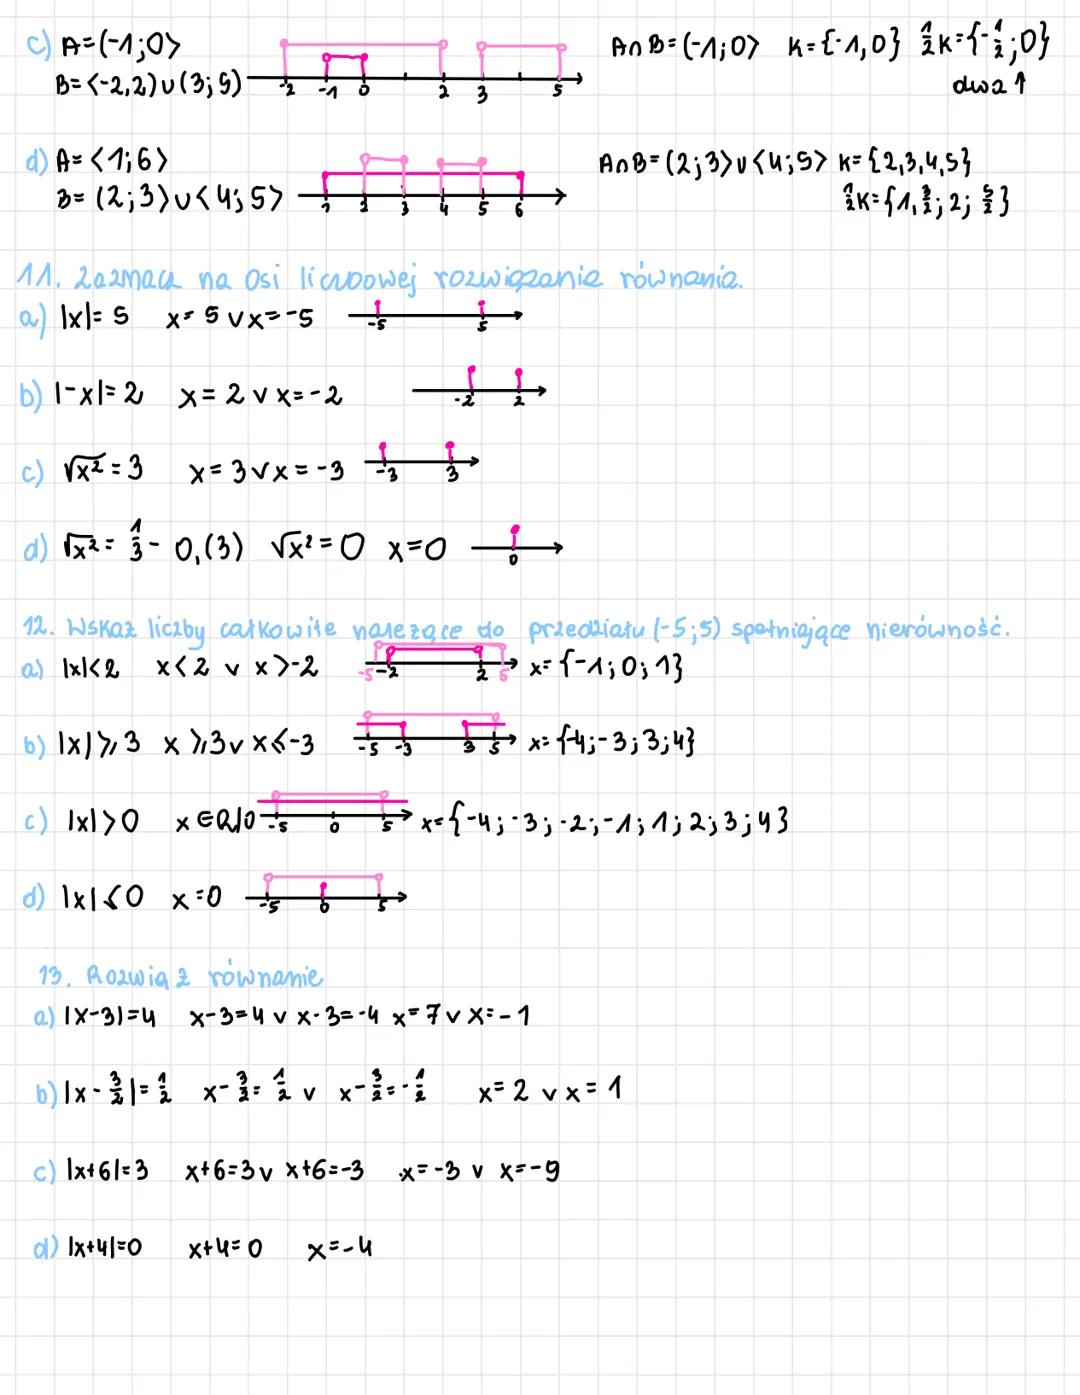 c) A=(-1;0> A∩B=(-1;0> K={-1,0} ½K={-½;0}
B=<-2,2)∪(3;5) -2 -1 0 2 3 5 dwa ↑
d) A=<1;6> A∩B=(2;3>∪<4;5> K={2,3,4,5}
B=(2;3>∪<4;5> 1 2 3 4 5 6 ½K={1,3/2;2;5/2}
11. Zaznacz na osi liczbowej rozwiązania równania.
a) |x|=5 x=5 ∨ x=-5 -5 5
b) |-x|=2 x=2 ∨ x=-2 -2 2
c) √x²=3 x=3 ∨ x=-3 -3 3
d) √x²=1/3-0,(3) √x²=0 x=0 0
12. Wskaż liczby całkowite należące do przedziału (-5;5) spełniające nierówność.
a) |x|<2 x<2 ∨ x>-2 -5 -2 2 5 x={-1;0;1}
b) |x|⩾3 x⩾3 ∨ x⩽-3 -5 -3 3 5 x={-4;-3;3;4}
c) |x|>0 x∈R\0 -5 0 5 x={-4;-3;-2;-1;1;2;3;4}
d) |x|⩽0 x=0 -5 0 5
13. Rozwiąż równanie
a) |x-3|=4 x-3=4 ∨ x-3=-4 x=7 ∨ x=-1
b) |x-3/2|=1/2 x-3/2=1/2 ∨ x-3/2=-1/2 x=2 ∨ x=1
c) |x+6|=3 x+6=3 ∨ x+6=-3 x=-3 ∨ x=-9
d) |x+4|=0 x+4=0 x=-4